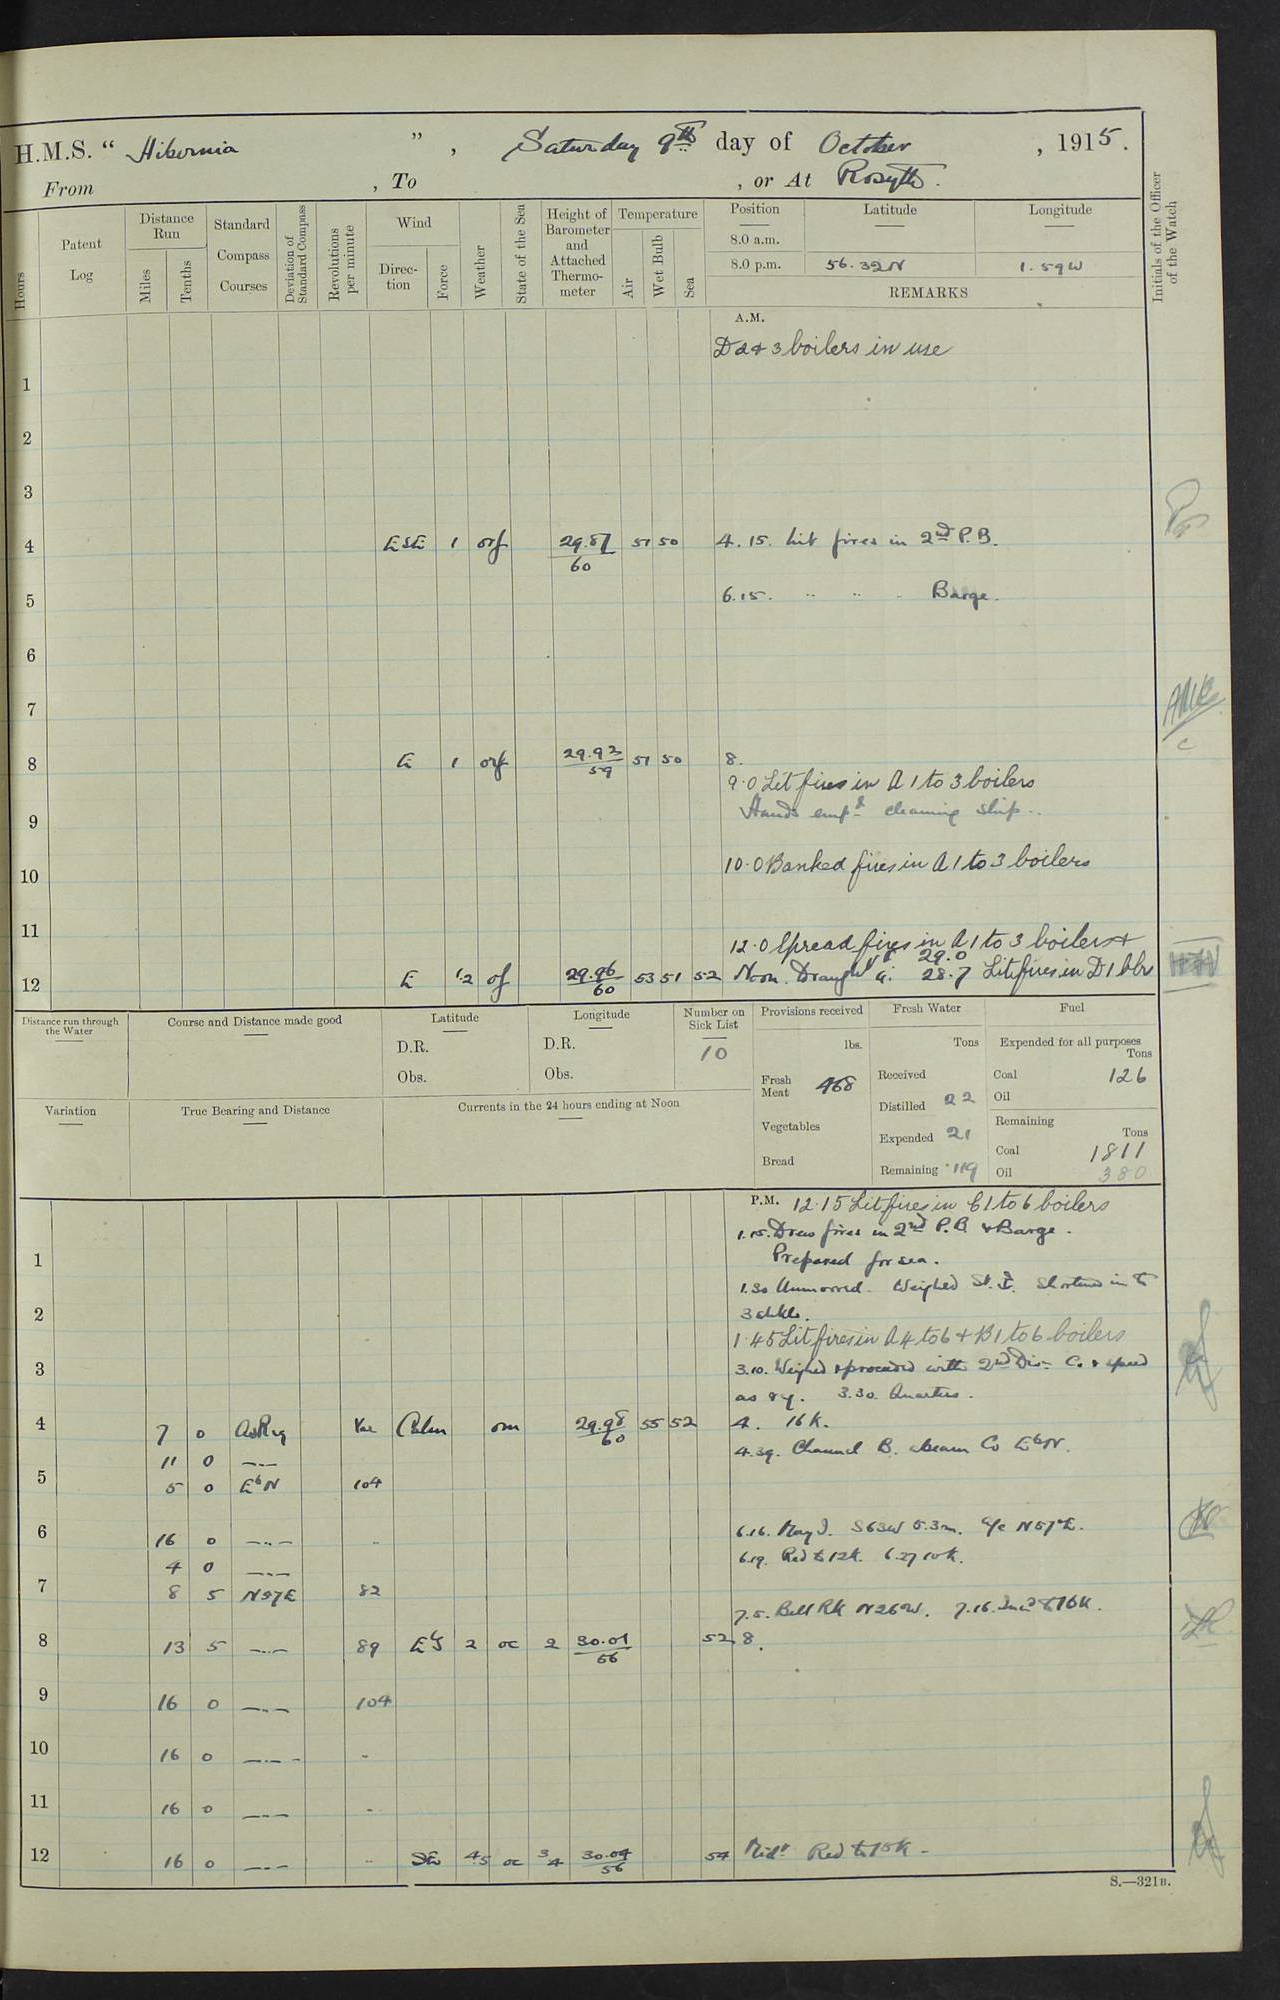 H.M.S. “ Hibernia ” , Saturday 9th day of October , 1915.
From , To , or At Rosyth.
Hours
Patent Log
Distance Run
Miles
Tenths
Standard Compass Courses
Deviation of Standard Compass
Revolutions per minute
Wind
Direction
Force
Weather
State of the Sea
Height of Barometer and Attached Thermometer
Temperature
Air
Wet Bulb
Sea
Position Latitude Longitude
8.0 a.m.
8.0 p.m. 56.32N 1.59W
REMARKS
Initials of the Officer of the Watch
A.M.
D2+3 boilers in use
1
2
3
4 ESE 1 orf 29.87 51 50 4.15. Lit fires in 2nd P.B.
60
5 6.15. " " " Barge.
6
7
8 E 1 orf 29.93 51 50 8.
59
9.0 Lit fires in A 1 to 3 boilers
9 Hands empd cleaning ship.
10 10.0 Banked fires in A 1 to 3 boilers
11
12.0 Spread fires in A 1 to 3 boilers +
12 E 1.2 of 29.96 53 51 52 Noon. Draught F 29.0
60 A. 28.7 Lit fires in D1 blr
Distance run through the Water
Course and Distance made good
Latitude
D.R.
Obs.
Longitude
D.R.
Obs.
Number on Sick List
10
Provisions received
lbs.
Fresh Meat 468
Vegetables
Bread
Fresh Water
Tons
Received
Distilled 22
Expended 21
Remaining 119
Fuel
Expended for all purposes
Tons
Coal 126
Oil
Remaining
Tons
Coal 1811
Oil 380
Variation
True Bearing and Distance
Currents in the 24 hours ending at Noon
P.M. 12.15 Lit fires in C1 to 6 boilers
1.15. Drew fires in 2nd P.B. + Barge.
1 Prepared for sea.
1.30 Unmoored. Weighed St. I. Shortened in to
2 3 shkls.
1.45 Lit fires in A 4 to 6 + B 1 to 6 boilers
3 3.10. Weighed + proceeded with 2nd Divn. Co. + speed
as rq. 3.30. Quarters.
4 7 0 As Req Var Calm om 29.98 55 52 4. 16 K.
60
11 0 —..— 4.39. Channel B. abeam Co EbN.
5 5 0 EbN 104
6 16 0 —..— .. 6.16. May I. S63W 5.3m. A/c N57E.
4 0 —..— 6.19. Red to 12K. 6.27 10K.
7 8 5 N57E 82
7.5. Bell Rk N26W. 7.16. Incd to 16K.
8 13 5 —..— 89 EbS 2 oc 2 30.01 52 8.
56
9 16 0 —..— 104
10 16 0 —..— ..
11 16 0 —..— ..
12 16 0 —..— .. SE 4.5 oc 3/4 30.04 54 Midt Red to 15K.
56
S.—321B.